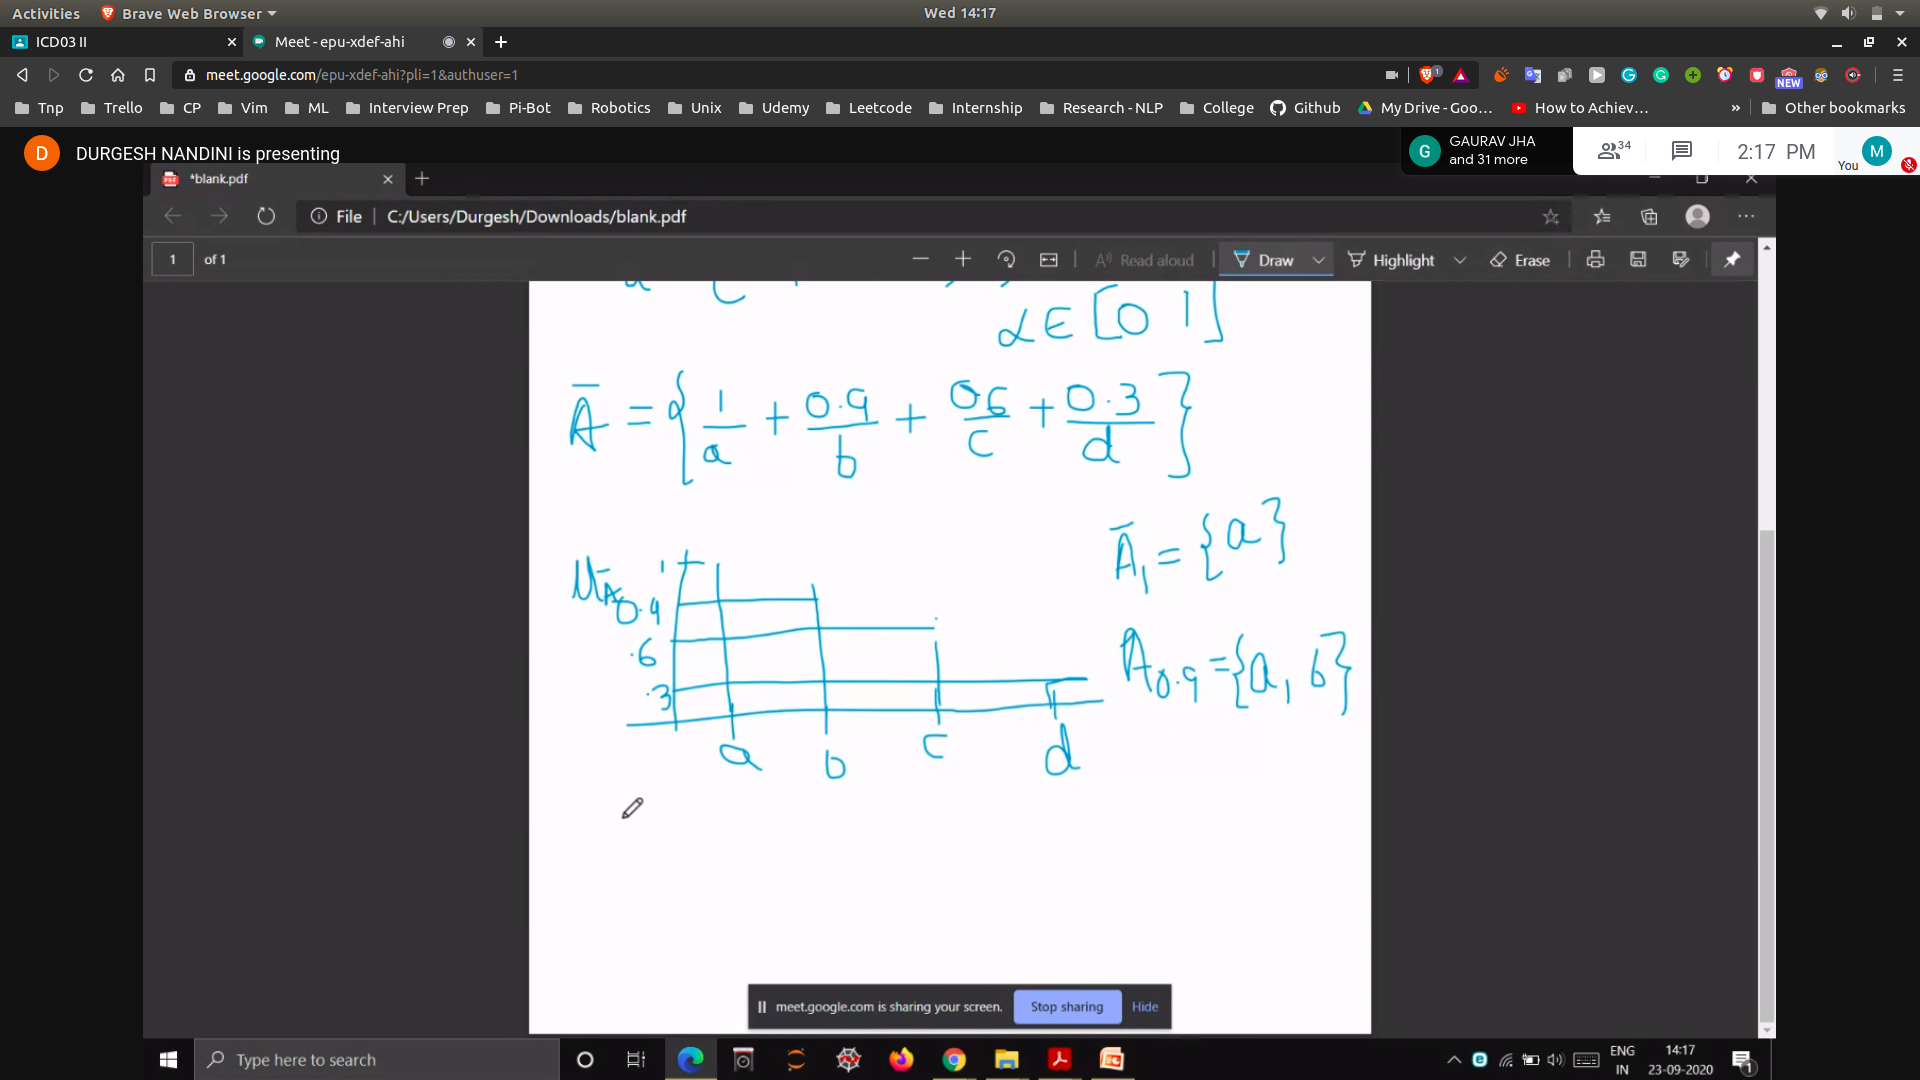 Activities Brave Web Browser Wed 14:17
ICD03 II Meet - epu-xdef-ahi
meet.google.com/epu-xdef-ahi?pli=1&authuser=1 1 NEW
Tnp Trello CP Vim ML Interview Prep Pi-Bot Robotics Unix Udemy Leetcode Internship Research - NLP College Github My Drive - Goo... How to Achiev... » Other bookmarks
D DURGESH NANDINI is presenting G GAURAV JHA and 31 more 34 2:17 PM You M
*blank.pdf
File C:/Users/Durgesh/Downloads/blank.pdf
1 of 1 Read aloud Draw Highlight Erase
α ∈ [0 1]
Ā = { 1/a + 0.9/b + 0.6/c + 0.3/d }
Ā₁ = {a}
μĀ 1
0.9
.6
.3
A0.9 = {a, b}
a b c d
meet.google.com is sharing your screen. Stop sharing Hide
Type here to search ENG IN 14:17 23-09-2020 1